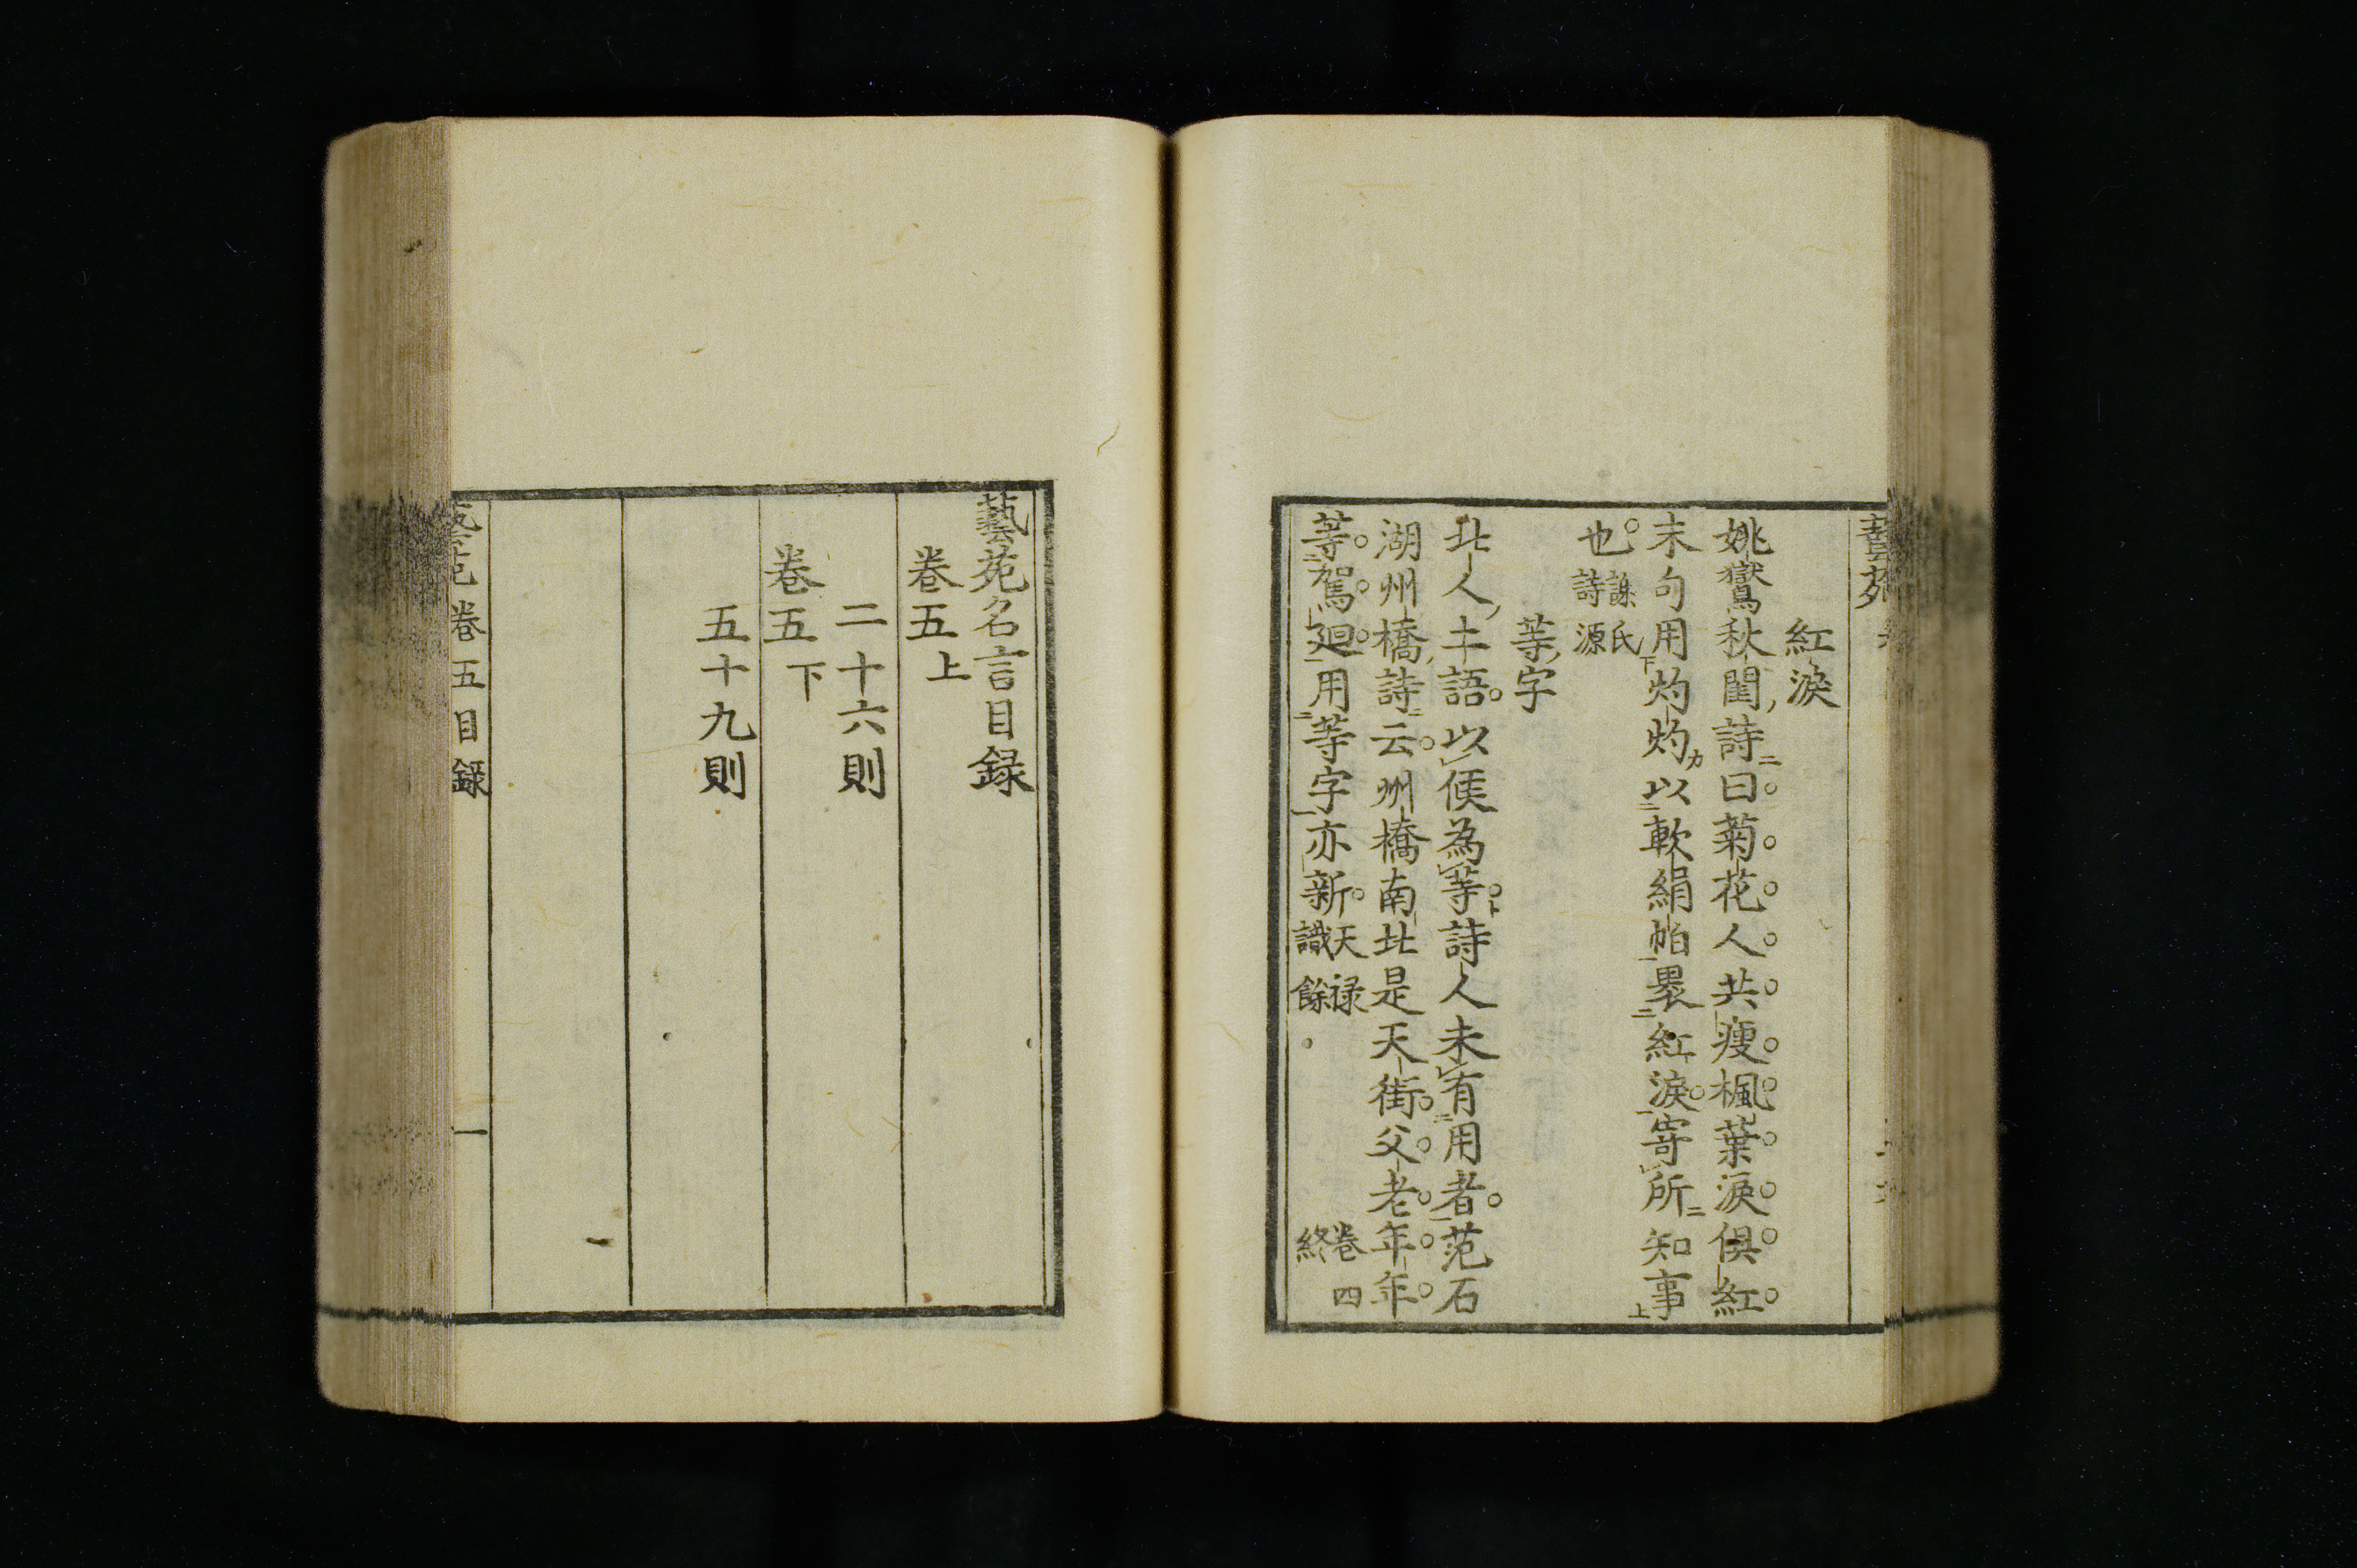 紅淚
姚鸑秋閨詩曰菊花人共瘦楓葉淚俱紅
末句用灼灼以軟絹帕裛紅淚寄所知事
也謝氏詩源
等字
北人土語以候為等詩人未有用者范石
湖州橋詩云州橋南北是天街父老年年
等駕廻用等字亦新天禄識餘 卷四終
藝苑名言目録
卷五上
二十六則
卷五下
五十九則
藝苑卷五目録 一